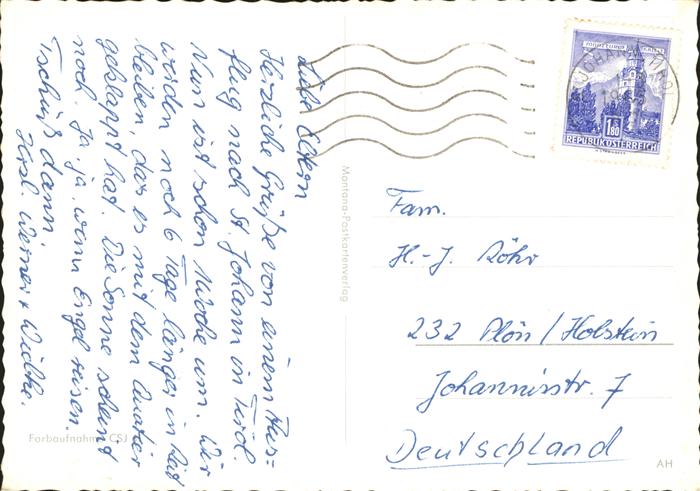 Liebe Eltern
Herzliche Grüße von einem Aus=
flug nach St. Johann in Tirol.
Nun ist schon 1 Woche um. Wir
werden noch 6 Tage länger in
bleiben, das es mit dem Quartier
geklappt hat. Die Sonne scheint
noch. Ja, ja, wenn Engel reisen.
Tschüß dann.
Herzl. Werner +
Montana-Postkartenverlag
Farbaufnahme CSJ
REPUBLIK ÖSTERREICH
1.80
Fam.
H.-J. Röhr
232 Plön / Holstein
Johannisstr. 7
Deutschland
AH